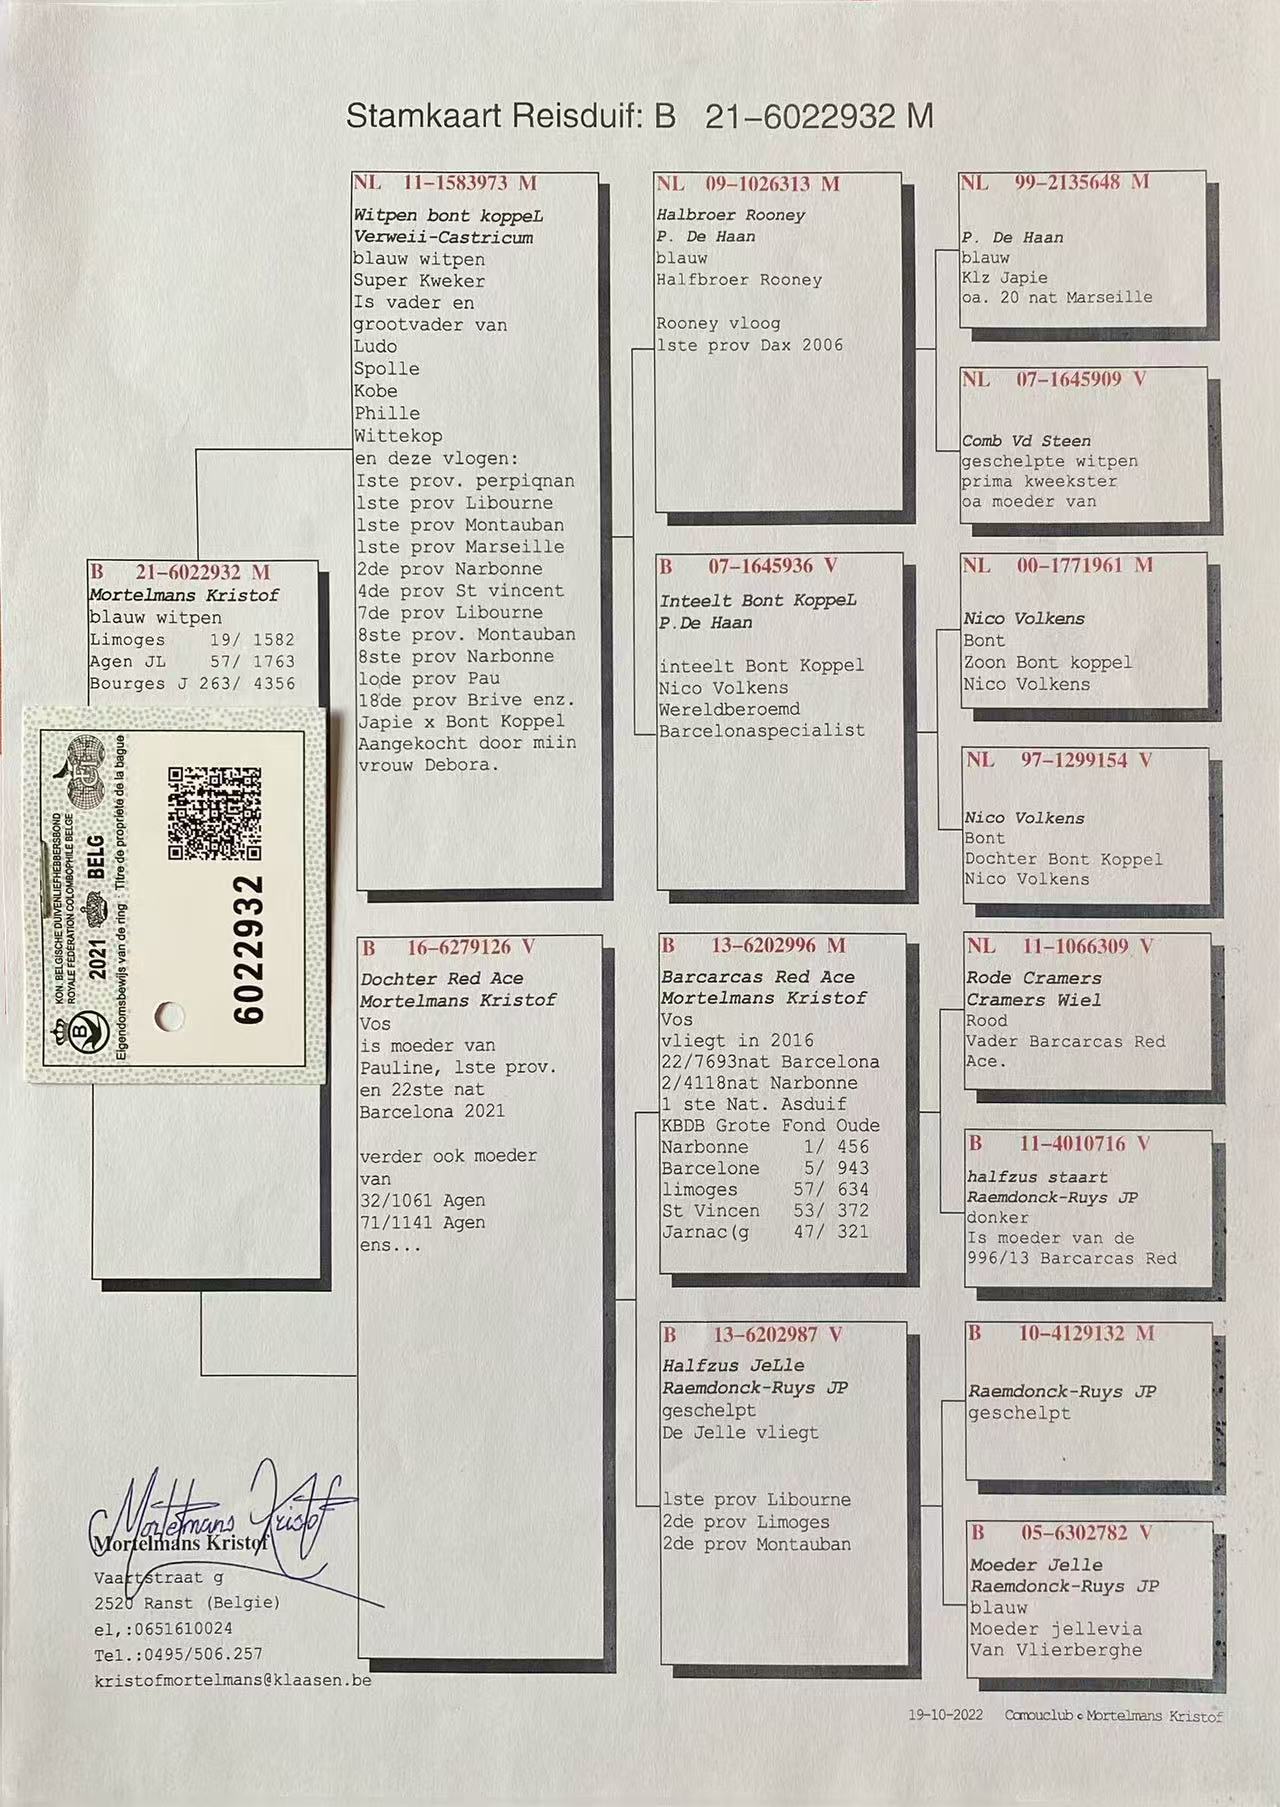 Stamkaart Reisduif: B 21-6022932 M
B 21-6022932 M
Mortelmans Kristof
blauw witpen
Limoges 19/ 1582
Agen JL 57/ 1763
Bourges J 263/ 4356
KON. BELGISCHE DUIVENLIEFHEBBERSBOND
ROYALE FÉDÉRATION COLOMBOPHILE BELGE
2021 BELG
Eigendomsbewijs van de ring - Titre de propriété de la bague
6022932
B
NL 11-1583973 M
Witpen bont koppeL
Verweii-Castricum
blauw witpen
Super Kweker
Is vader en
grootvader van
Ludo
Spolle
Kobe
Phille
Wittekop
en deze vlogen:
Iste prov. perpiqnan
1ste prov Libourne
1ste prov Montauban
1ste prov Marseille
2de prov Narbonne
4de prov St vincent
7de prov Libourne
8ste prov. Montauban
8ste prov Narbonne
lode prov Pau
18de prov Brive enz.
Japie x Bont Koppel
Aangekocht door miin
vrouw Debora.
B 16-6279126 V
Dochter Red Ace
Mortelmans Kristof
Vos
is moeder van
Pauline, 1ste prov.
en 22ste nat
Barcelona 2021
verder ook moeder
van
32/1061 Agen
71/1141 Agen
ens...
NL 09-1026313 M
Halbroer Rooney
P. De Haan
blauw
Halfbroer Rooney
Rooney vloog
1ste prov Dax 2006
B 07-1645936 V
Inteelt Bont KoppeL
P.De Haan
inteelt Bont Koppel
Nico Volkens
Wereldberoemd
Barcelonaspecialist
B 13-6202996 M
Barcarcas Red Ace
Mortelmans Kristof
Vos
vliegt in 2016
22/7693nat Barcelona
2/4118nat Narbonne
1 ste Nat. Asduif
KBDB Grote Fond Oude
Narbonne 1/ 456
Barcelone 5/ 943
limoges 57/ 634
St Vincen 53/ 372
Jarnac(g 47/ 321
B 13-6202987 V
Halfzus JeLle
Raemdonck-Ruys JP
geschelpt
De Jelle vliegt
1ste prov Libourne
2de prov Limoges
2de prov Montauban
NL 99-2135648 M
P. De Haan
blauw
Klz Japie
oa. 20 nat Marseille
NL 07-1645909 V
Comb Vd Steen
geschelpte witpen
prima kweekster
oa moeder van
NL 00-1771961 M
Nico Volkens
Bont
Zoon Bont koppel
Nico Volkens
NL 97-1299154 V
Nico Volkens
Bont
Dochter Bont Koppel
Nico Volkens
NL 11-1066309 V
Rode Cramers
Cramers Wiel
Rood
Vader Barcarcas Red
Ace.
B 11-4010716 V
halfzus staart
Raemdonck-Ruys JP
donker
Is moeder van de
996/13 Barcarcas Red
B 10-4129132 M
Raemdonck-Ruys JP
geschelpt
B 05-6302782 V
Moeder Jelle
Raemdonck-Ruys JP
blauw
Moeder jellevia
Van Vlierberghe
Mortelmans Kristof
Mortelmans Kristof
Vaartstraat g
2520 Ranst (Belgie)
el,:0651610024
Te1.:0495/506.257
kristofmortelmans@klaasen.be
19-10-2022 Comouclub © Mortelmans Kristof